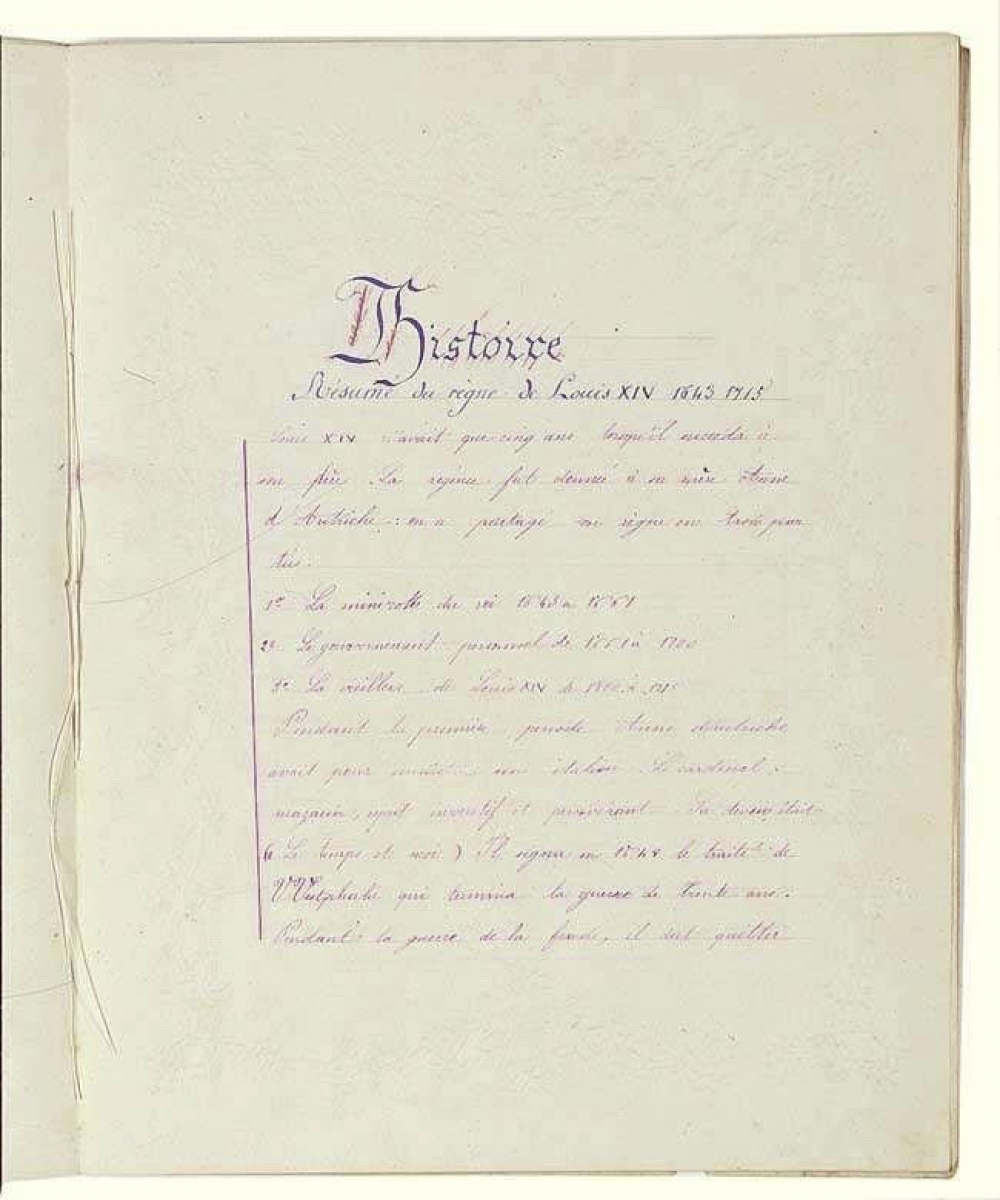 Histoire
Résumé du règne de Louis XIV 1643 1715
Louis XIV n'avait que cinq ans lorsqu'il succéda à
son père. La régence fut donnée à sa mère Anne
d'Autriche : on a partagé son règne en trois par
ties.
1º La minorité du roi 1643 à 1661
2º Le gouvernement personnel de 1661 à 1700
3º La vieillesse de Louis XIV de 1700 à 1715
Pendant la première période Anne d'autriche
avait pour ministre un italien. Le cardinal
mazarin, esprit inventif et persévérant. Sa devise était
(Le temps et moi) Il signa en 1648 le traité de
Westphalie qui termina la guerre de trente ans.
Pendant la guerre de la fronde, il dut quitter